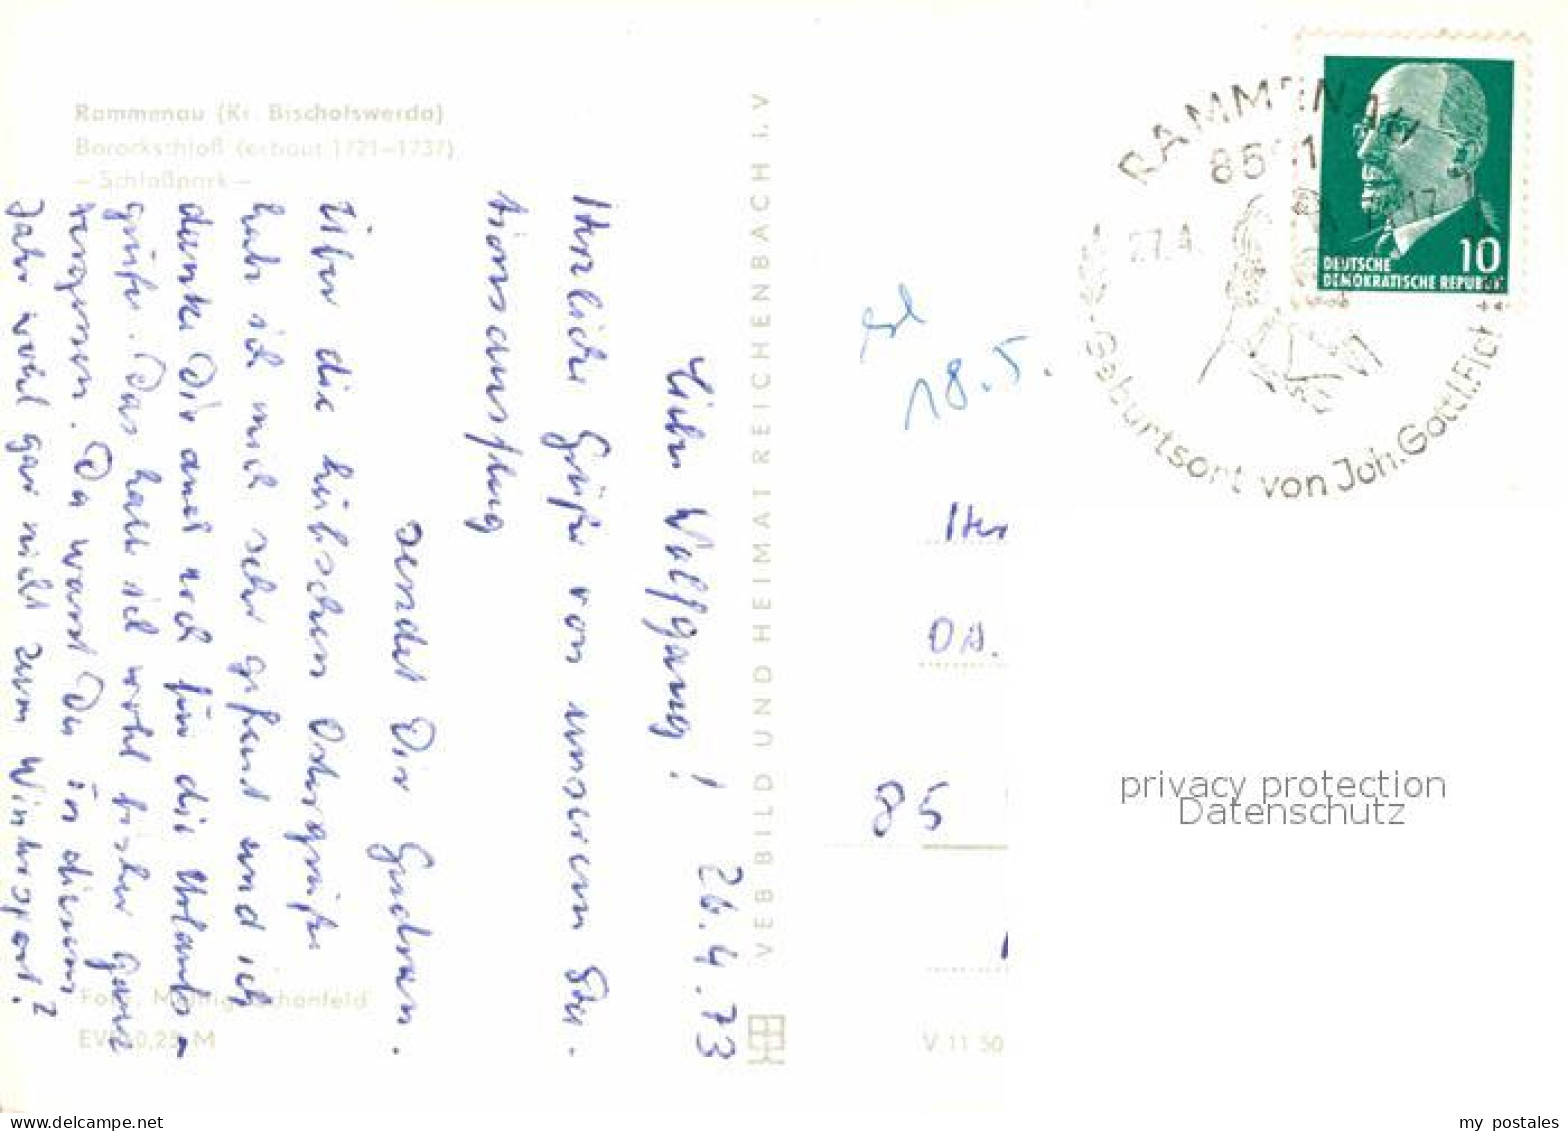 Rammenau (Kr. Bischofswerda)
Barockschloß (erbaut 1721–1737)
– Schloßpark –
26.4.73
Lieber Wolfgang!
Herzliche Grüße von unserem Stu-
tionsausflug
sendet Dir Gudrun.
Über die hübschen Ostergrüße
habe ich mich sehr gefreut und ich
danke Dir auch noch für die Urlaubs-
grüße. Das hatte ich wohl bisher ganz
vergessen. Du warst Du in diesem
Jahr wohl gar nicht zum Wintersport?
Foto: Schönfeld
EVP 0,25 M
VEB BILD UND HEIMAT REICHENBACH I. V
V 11 50
RAMMENAU
8501
27.4.
Geburtsort von Joh. Gottl. Ficht
10
DEUTSCHE
DEMOKRATISCHE REPUBLIK
18.5.
Her
OA.
85
privacy protection
Datenschutz
my postales